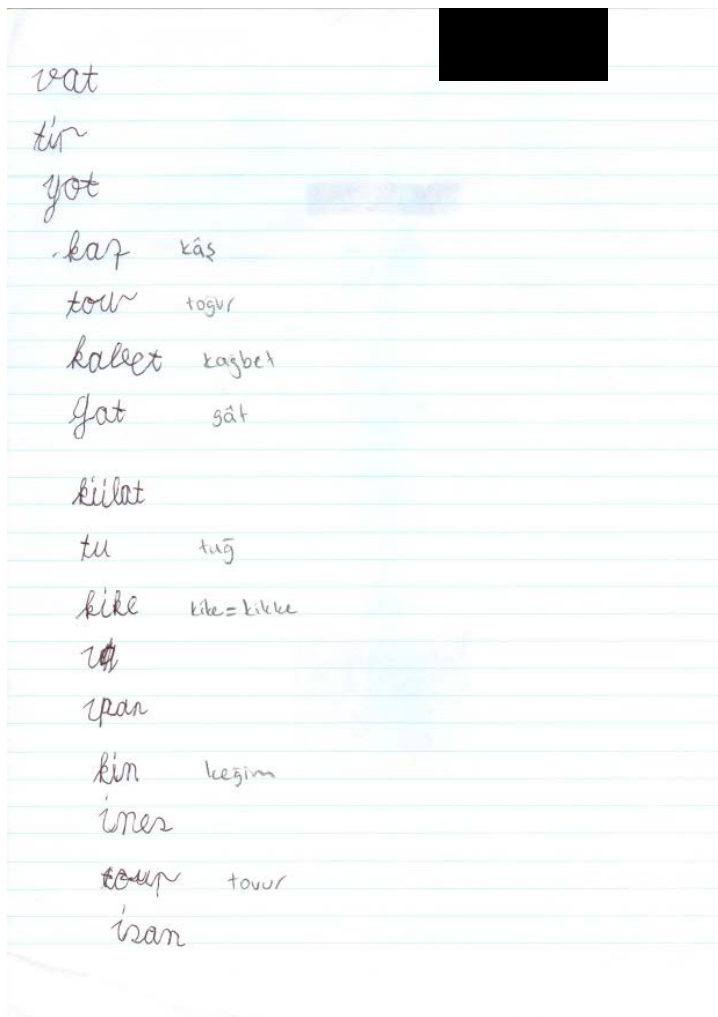 vat
tir
yot
kaz kâş
tour toğur
kalbet kağbet
gat gât
külat
tu tuğ
kike kike=kikke
ıpan
kin keğim
ines
tour tovur
isan